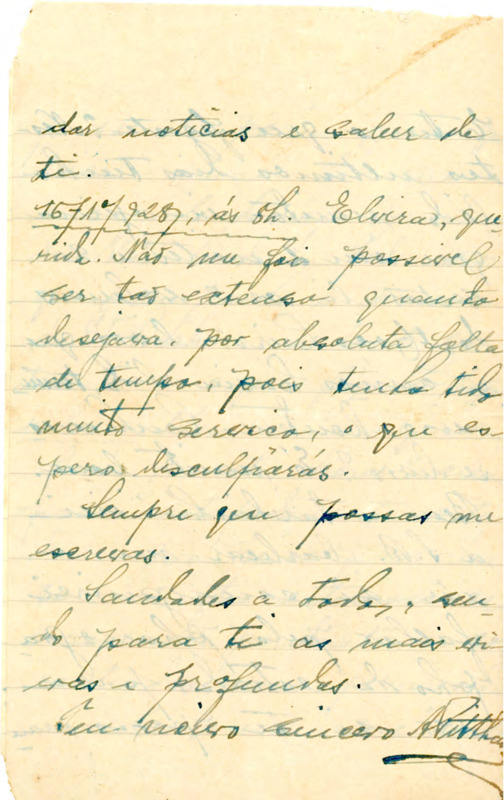 dar noticias e saber de
ti.
16/1º/928, ás 8h. Elvira, que-
rida. Não me foi possivel
ser tão extenso quanto
desejava, por absoluta falta
de tempo, pois tenho tido
muito serviço, o que es-
pero disculpárás.
Sempre que possas me
escrevas.
Saudades a todos, sen-
do para ti as mais vi-
vas e profundas.
Teu sincero